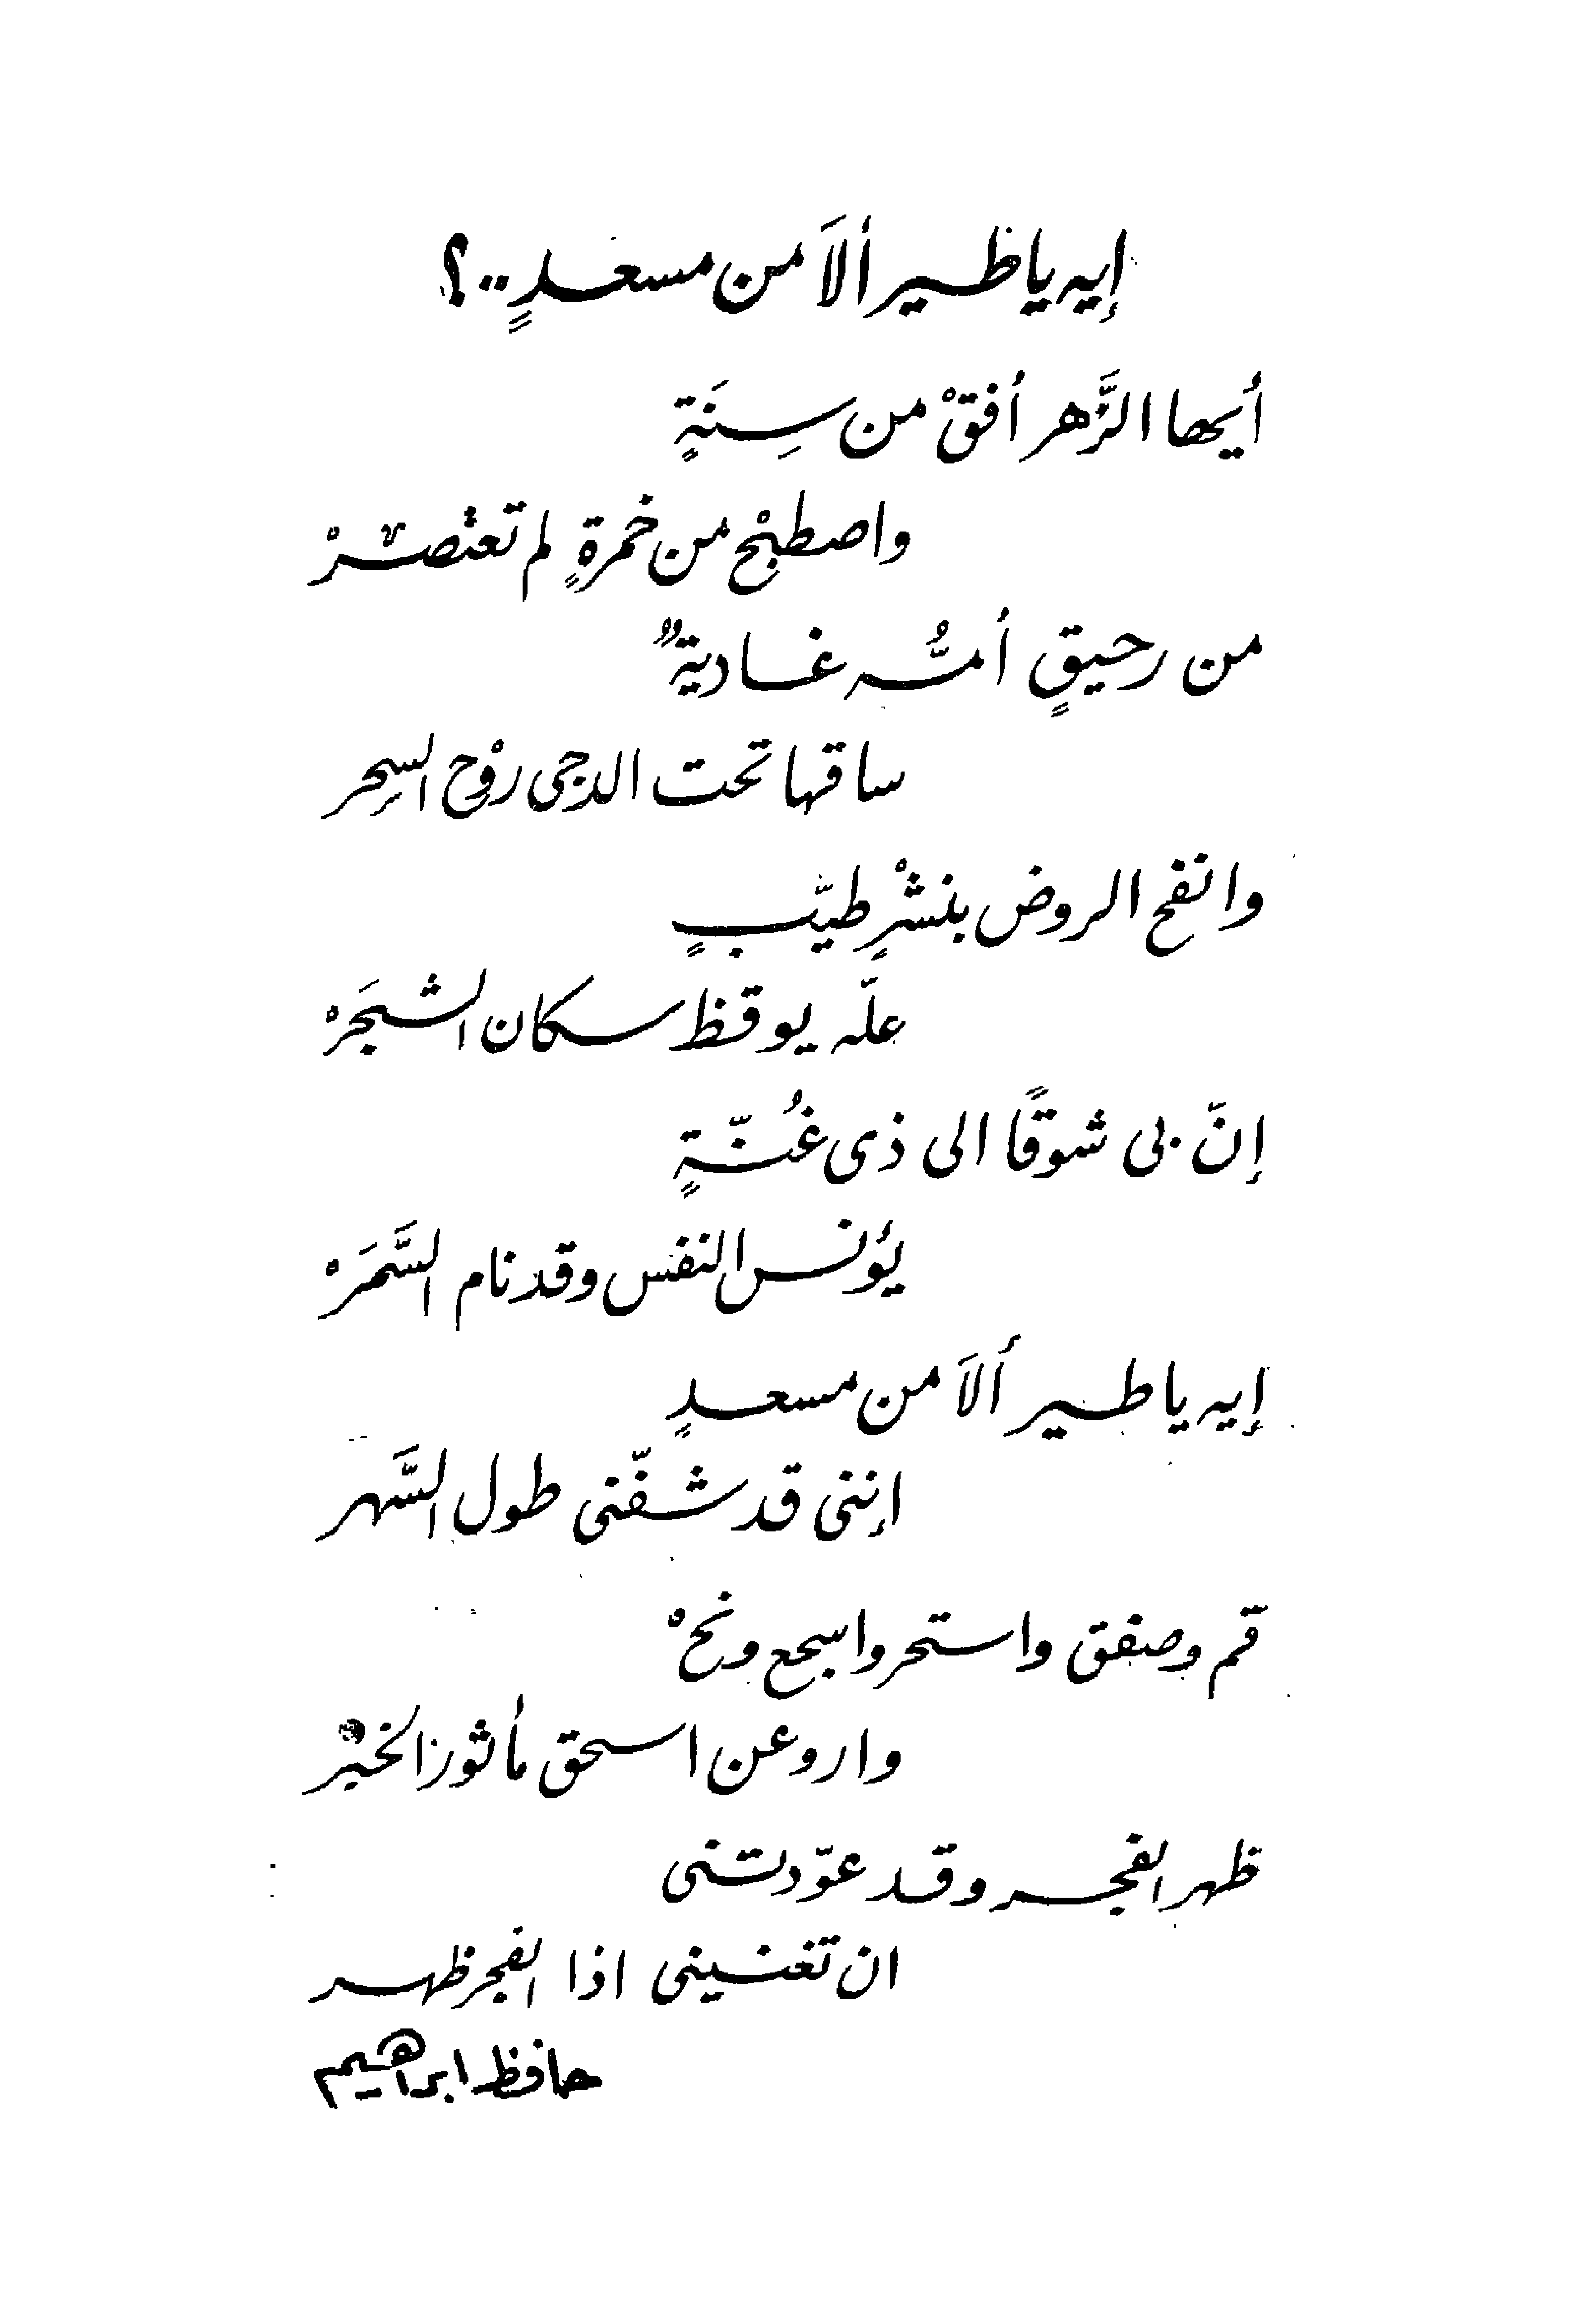 إيه يا طير ألاَ من مسعدٍ..؟
أيها الزَّهر أفقْ من سِنَةٍ
واصطبحْ من خمرةٍ لم تعتصرْ
من رحيقٍ أمُّه غاديةٌ
ساقها تحت الدجى روْح السِحر
وانفح الروض بنشْرٍ طيّبٍ
علّه يوقظ سكان الشجَرْ
إنّ بى شوقًا الى ذى غُنّةٍ
يؤنس النفس وقد نام السَّمَرْ
إيه يا طير ألاَ من مسعدٍ
إننى قد شفّنى طول السَّهر
قم وصفق واستحر واسجع ونحْ
وارو عن اسحق مأثور الخبرْ
ظهر الفجر وقد عوّدتنى
ان تغنينى اذا الفجر ظهر
حافظ ابراهيم